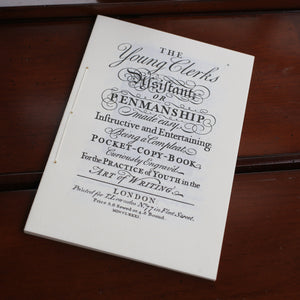 THE
Young Clerks
Assistant;
OR
PENMANSHIP
made easy,
Instructive and Entertaining:
Being a Compleat
POCKET-COPY-BOOK
Curiously Engrav'd
For the PRACTICE of YOUTH in the
ART of WRITING.
LONDON.
Printed for
in Fleet Street.
Price
Sewed or
Bound.